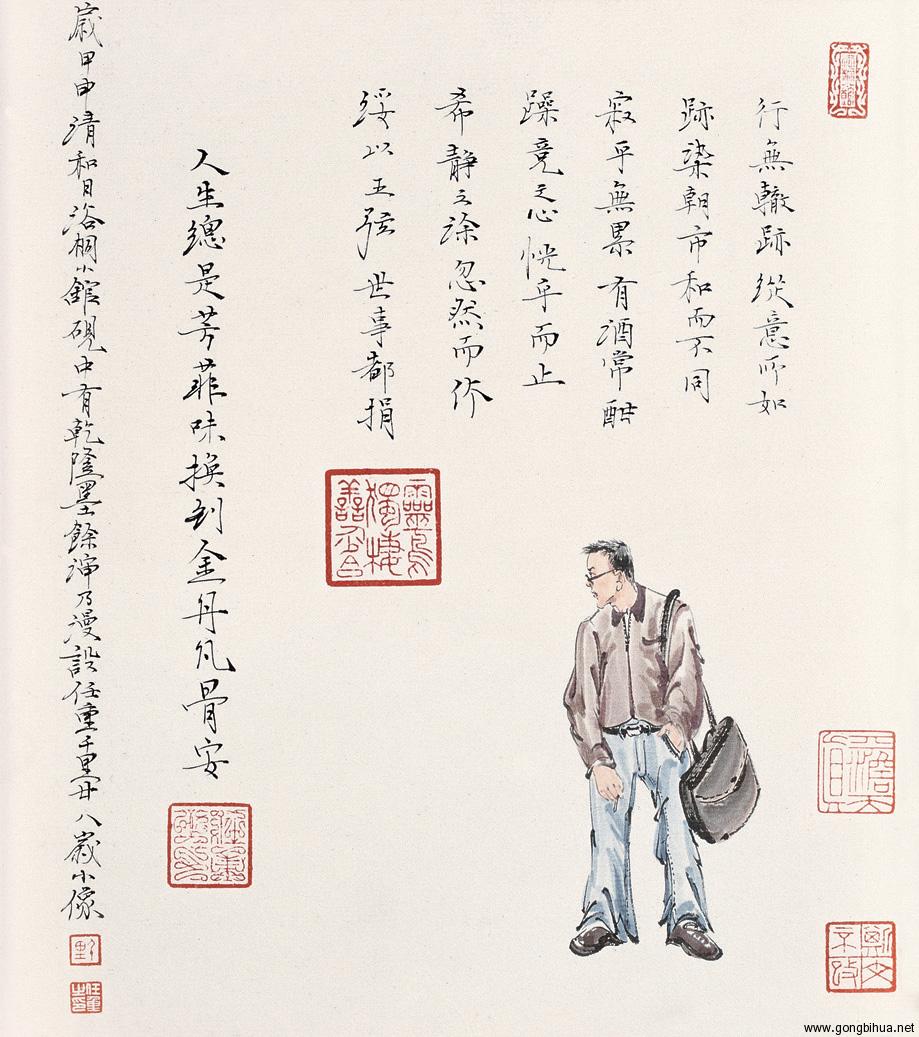 行無轍跡從意所如
跡染朝市和而不同
寂乎無累有酒常酣
躁竟之心恍乎而止
希靜之涂忽然而作
綏以五弦世事都捐
人生總是芳菲味換到金丹凡骨安
歲甲申清和月浴桐小館硯中有乾隆墨餘渖乃漫設任重千里廿八歲小像
靈鳥
獨棲
任重
www.gongbihua.net